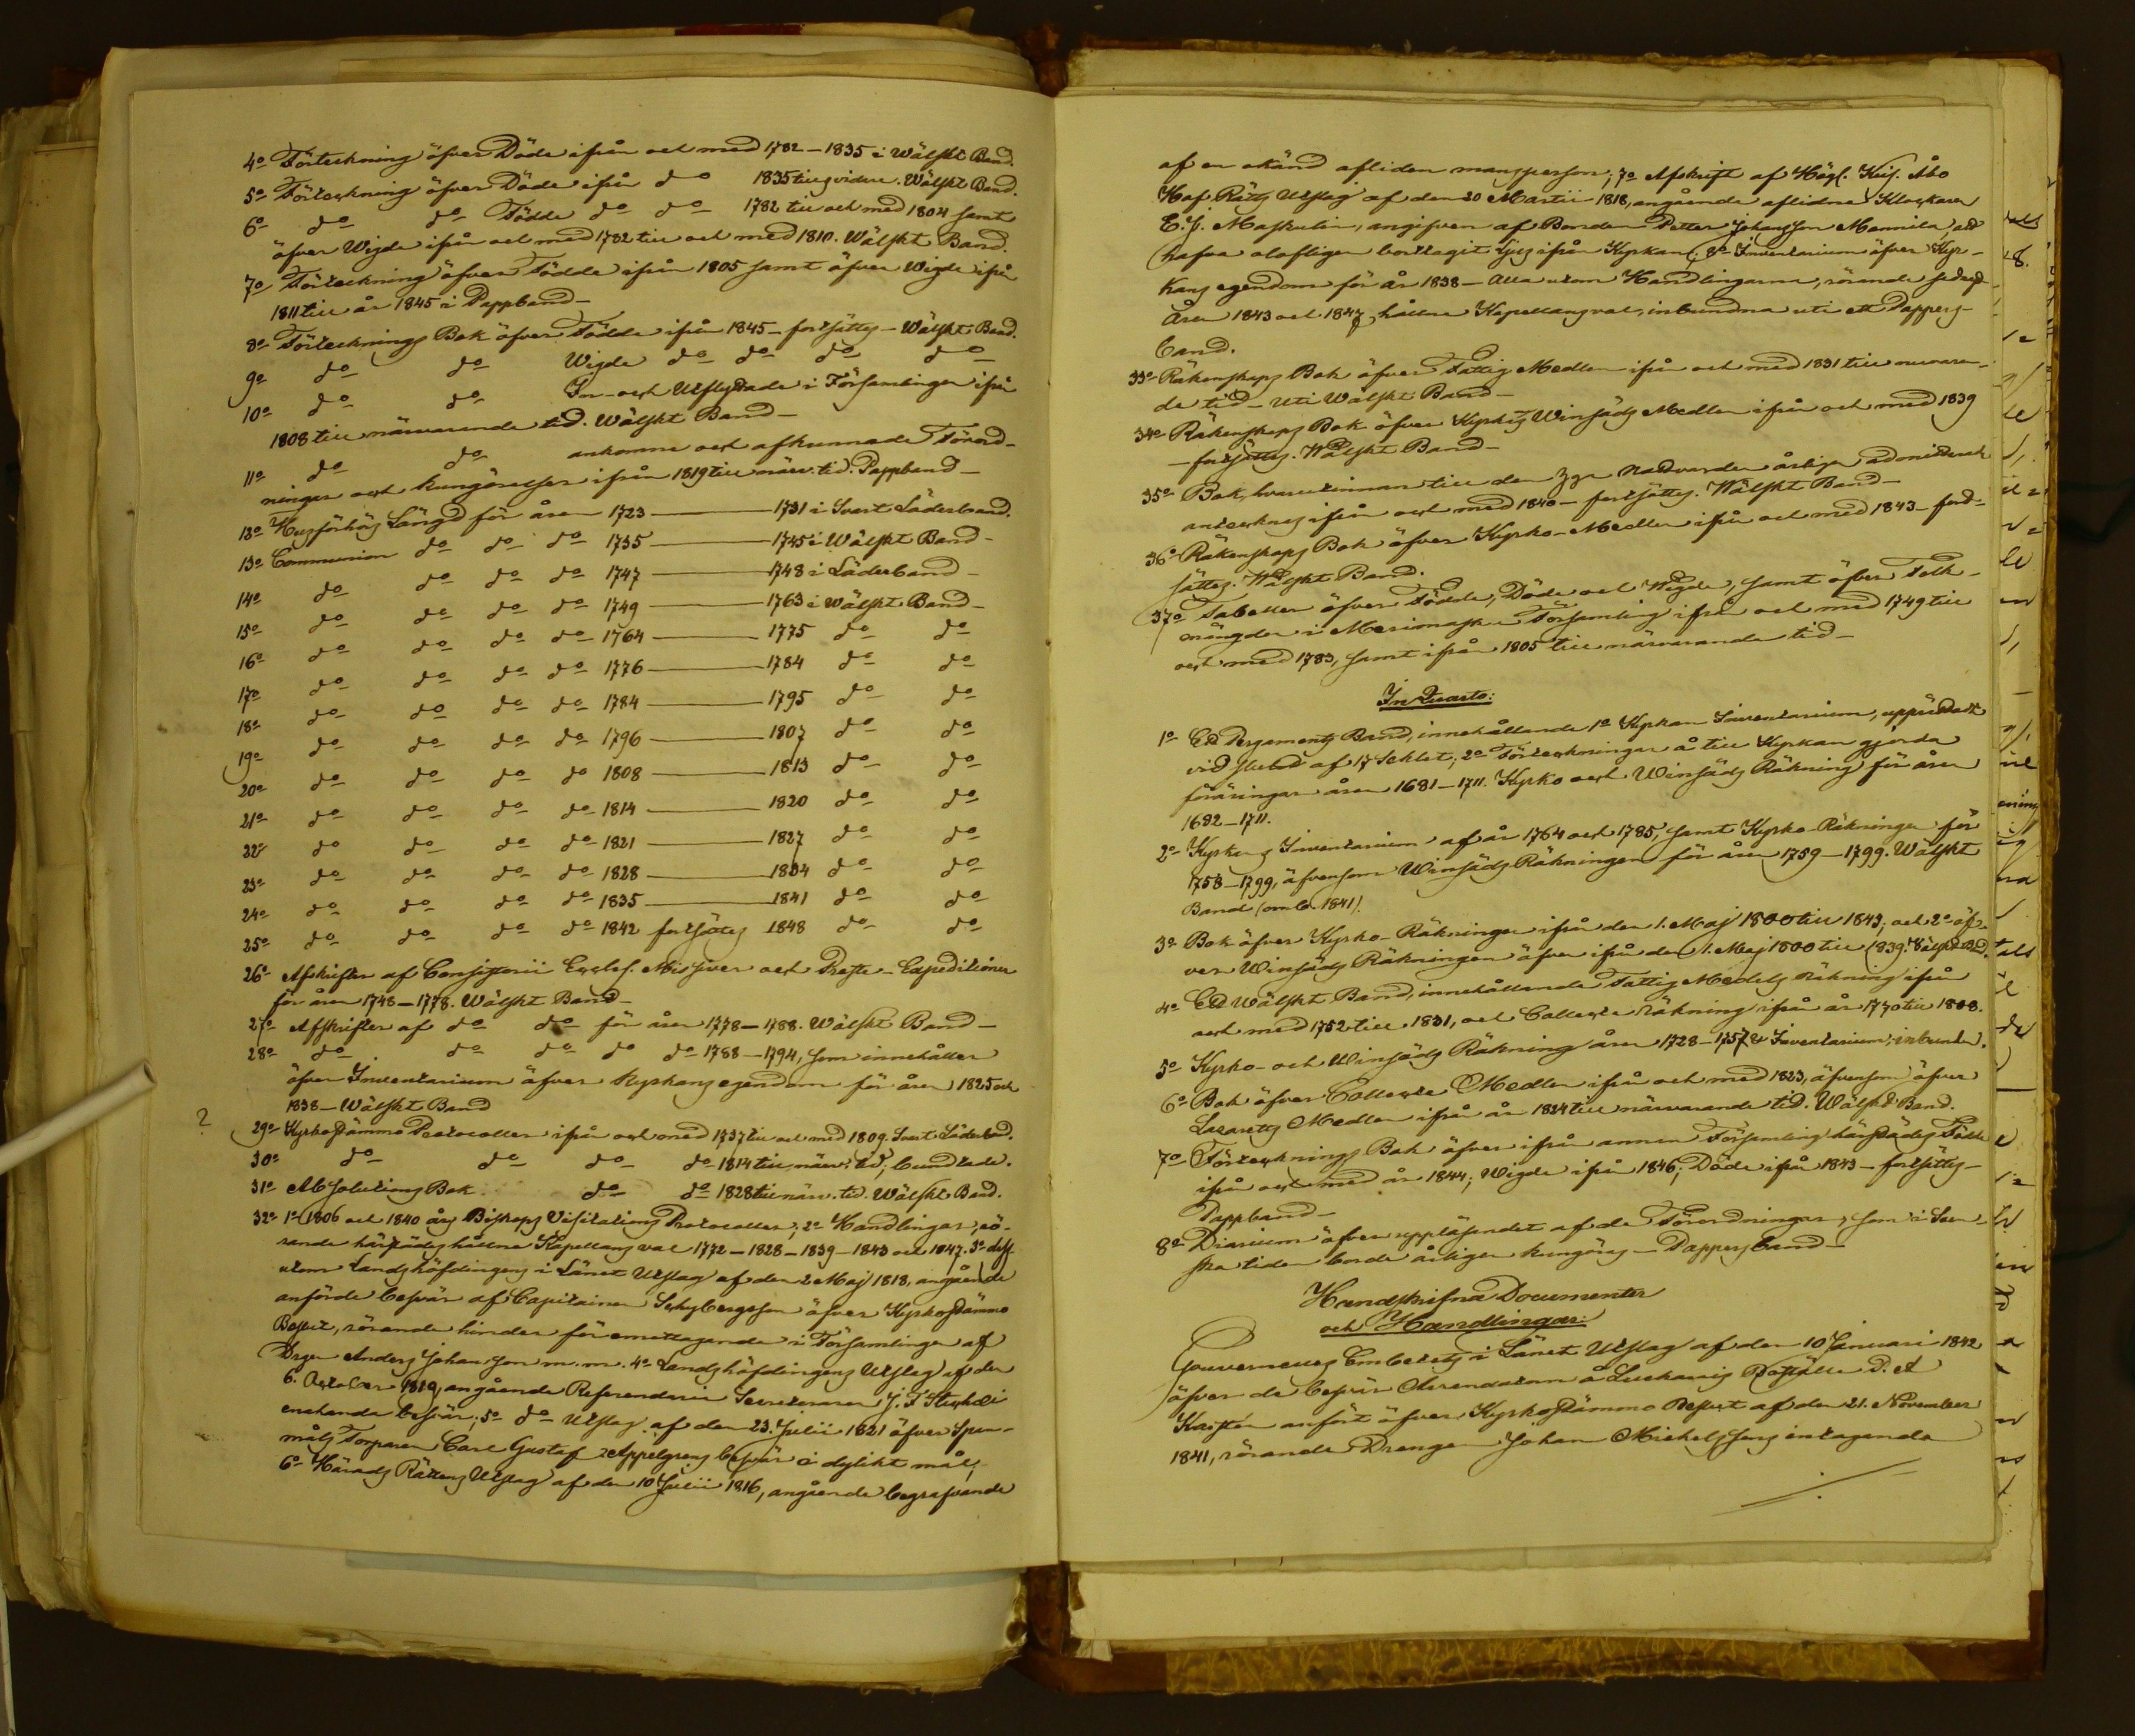 4o Förteckning öfver Döde ifrån och med 1782 – 1835 i Wälskt Band.
5o Förteckning öfver Döde ifrån do 1835 till vidare. Wälskt Band.
6o do do Födde do do 1782 till och med 1804 samt
öfver Wigde ifrån och med 1782 till och med 1810. Wälskt Band.
7o Förteckning öfver Födde ifrån 1805 samt öfver Wigde ifrån
1811 till år 1845 i Pappband –
8o Förtecknings Bok öfver Födde ifrån 1845 – fortsättes – Wälskt Band.
9o do do Wigde do do do do
10o do do In- och Utflyttade i Församlingen ifrån
1808 till närvarande tid. Wälskt Band –
11o do do ankomne och afkunnade Förord-
ningar och Kungörelser ifrån 1819 till närv. tid. Pappband –
12o Husförhörs Längd för åren 1723 – 1731 i Svart Läderband.
13o Communion do do do 1735 – 1745 i Wälskt Band –
14o do do do do 1747 – 1748 i Läderband –
15o do do do do 1749 – 1763 i Wälskt Band –
16o do do do do 1764 – 1775 do do
17o do do do do 1776 – 1784 do do
18o do do do do 1784 – 1795 do do
19o do do do do 1796 – 1807 do do
20o do do do do 1808 – 1813 do do
21o do do do do 1814 – 1820 do do
22o do do do do 1821 – 1827 do do
23o do do do do 1828 – 1834 do do
24o do do do do 1835 – 1841 do do
25o do do do do 1842 fortsättes 1848 do do
26o Afskrifter af Consistorii Eccles. Missiver och Prests-Expeditioner
för åren 1748 – 1778. Wälskt Band –
27o Afskrifter af do do för åren 1778 – 1788. Wälskt Band –
28o do do do do do 1788 – 1794, som innehåller
öfver Inventarium öfver Kyrkans egendom för åren 1825 och
1838 – Wälskt Band
? 29o Kyrkostämmo Protocoller ifrån och med 1737 till och med 1809. Svart Läderband.
30o do do do do 1814 till närv. tid; bundtade.
31o Absolutions Bok do do 1828 till närv. tid. Wälskt Band.
32o 1o 1806 och 1840 års Biskops Visitations Protocoller; 2o Handlingar, rö-
rande härstädes hållne Kapellans val 1772 – 1828 – 1839 – 1843 och 1847. 3o dess-
utom Landshöfdingens i Länet Utslag af den 2 Maj 1818, angående
anförde besvär af Capitainen Schybergsson öfver Kyrkostämmo
Beslut, rörande hinder för emottagande i Församlingen af
Drgen Anders Johansson m.m. 4o Landshöfdingens Utslag af den
6. October 1819, angående Referenderie Secreteraren J. F. Stichæi
enahanda besvär; 5o do Utslag af den 23. Julii 1821 öfver Spen-
måls Torparen Carl Gustaf Appelgrens besvär i dylikt mål;
6o Härads Rättens Utslag af den 10 Julii 1816, angående begrafvande
af en okänd afliden mansperson; 7o Afskrift af Högl. Keis. Åbo
Hof Rätts Utslag af den 20 Martii 1818, angående aflidne Klockaren
E. J. Maskulin, angifven af Bonden Petter Johansson Mannila, att
hafva olofligen borttagit ljus ifrån Kyrkan; 8o Inventarium öfver Kyr-
kans egendom för år 1838 – Alla utom Handlingarne, rörande
Åren 1843 och 1847 hållne Kapellans val, inbundna uti ett Pappers-
band.
33o Räkenskaps Bok öfver Fattig Medlen ifrån och med 1831 till nuvaran-
de tid – Uti Wälskt Band –
34o Räkenskaps Bok öfver Kyrkans Winsäds Medlen ifrån och med 1839
– fortsättes. Wälskt Band –
35o Bok, hvarutinnan till den H. Nattvarden årligen admitterade
antecknas ifrån och med 1840 – fortsättes. Wälskt Band –
36o Räkenskaps Bok öfver Kyrko-Medlen ifrån och med 1843 – fort-
sättes. Wälskt Band.
37o Tabeller öfver Födde, Döde och Wigde, samt öfver Folk-
mängden i Merimasku Församling ifrån och med 1749 till
och med 1783, samt ifrån 1805 till närvarande tid –
In Quarto:
1o Ett Pergaments Band, innehållande 1o Kyrkans Inventarium, upprättadt
vid slutet af 17 Seklet; 2o Förteckningar å till Kyrkan gjorda
föräringar åren 1681 – 1711. Kyrko och Winsäds Räkning för åren
1682 – 1711.
2o Kyrkans Inventarium af år 1764 och 1785, samt Kyrko-Räkningen för
1758 – 1799, äfvensom Winsäds Räkningen för åren 1759 – 1799. Wälskt
Band (omb. 1841).
3o Bok öfver Kyrko-Räkningen ifrån den 1. Maj 1800 till 1843; och 2o öf-
ver Winsäds Räkningen äfven ifrån den 1. Maj 1800 till 1839. Wälskt Bd.
4o Ett Wälskt Band, innehållande Fattig Medels Räkning ifrån
och med 1752 till 1831, och Collecte räkning ifrån år 1770 till 1808.
5o Kyrko- och Winsäds Räkning åren 1728 – 1757 & Inventarium; inbunden.
6o Bok öfver Collecte Medlen ifrån och med 1823, äfvensom öfver
Lazaretts Medlen ifrån år 1824 till närvarande tid. Wälskt Band.
7o Förtecknings Bok öfver ifrån annan Församling härstädes Födde
ifrån och med år 1844; Wigde ifrån 1846; Döde ifrån 1843 – fortsättes –
Pappband –
8o Diarium öfver uppläsandet af de Förordningar, som i Sven-
ska tiden borde årligen kungöras – Pappersband –
Handskrifna Documenter
och Handlingar:
Gouverneurs Embetets i Länet Utslag af den 10 Januari 1842
öfver de besvär Arrendatorn å Boställe D. A.
Kastén anfört öfver Kyrkostämmo Beslut af den 21. November
1841, rörande Drengen Johan Michelssons intagande